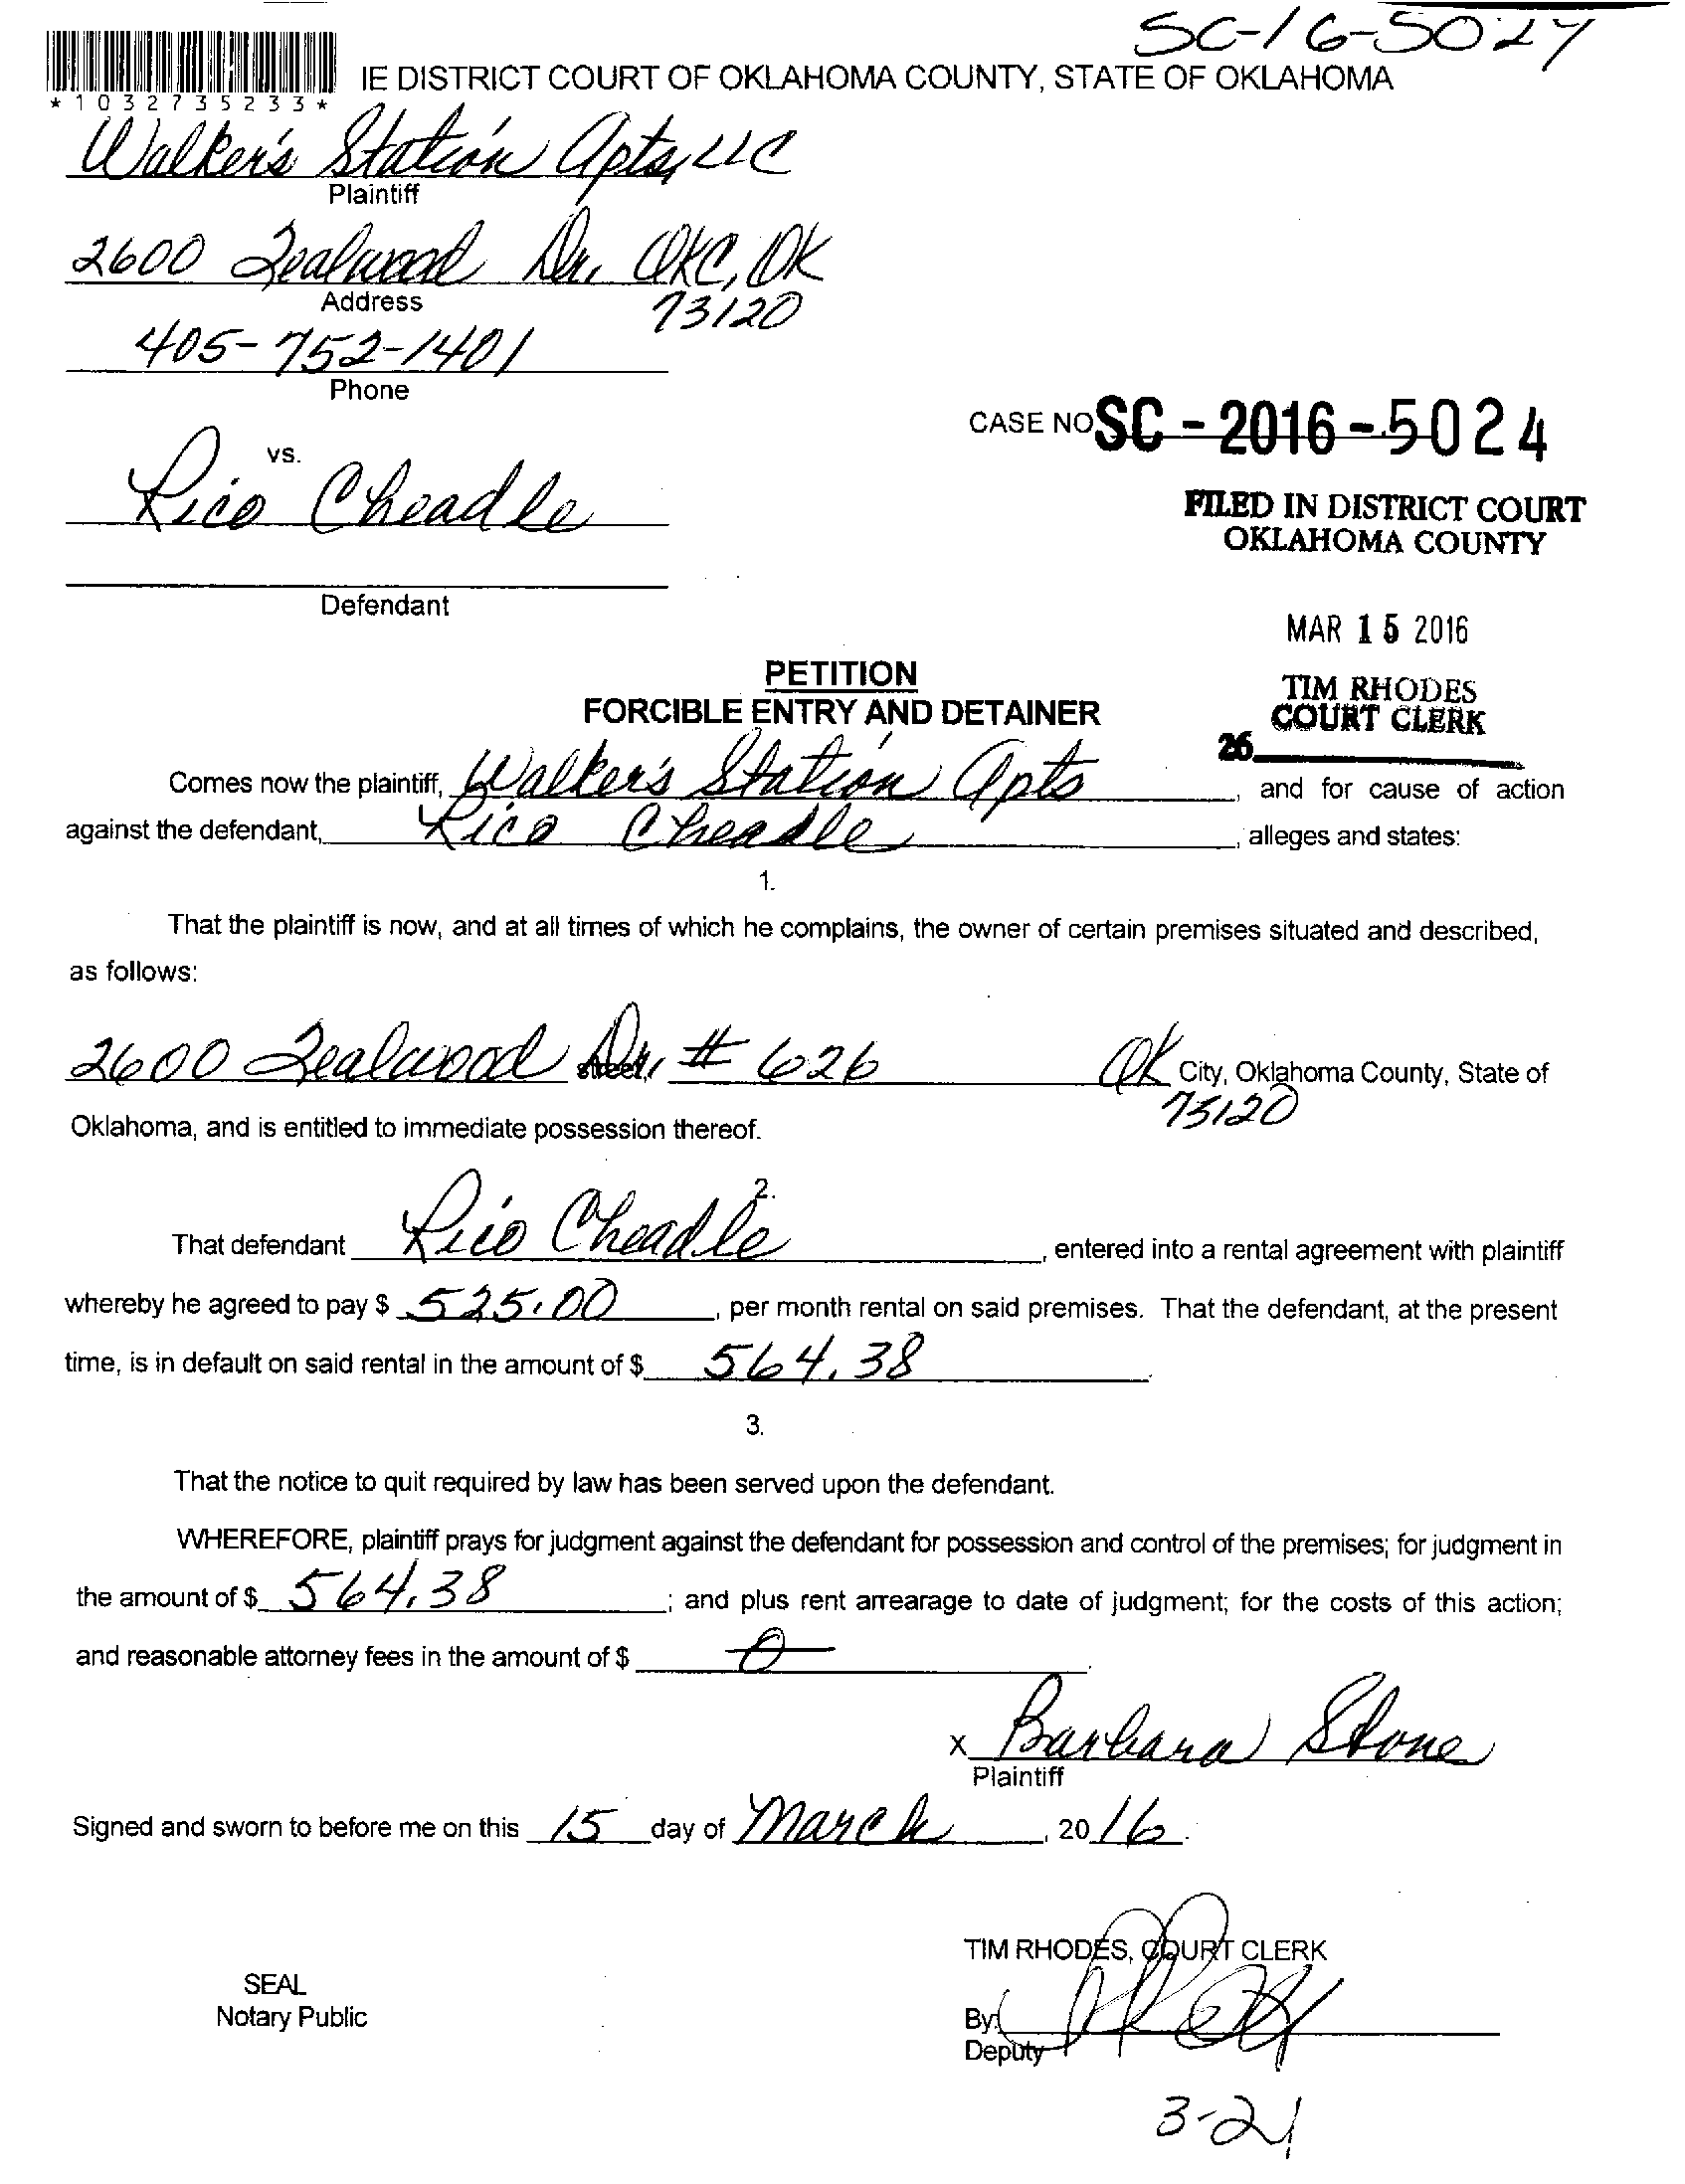 SC-16-5024
IE DISTRICT COURT OF OKLAHOMA COUNTY, STATE OF OKLAHOMA
*1032735233*
Walker's Station Apts, LLC
Plaintiff
2600 Zealwood Dr. OKC, OK
Address
73120
405-752-1401
Phone
CASE NO SC - 2016 - 5024
vs.
Rico Cheadle
FILED IN DISTRICT COURT
OKLAHOMA COUNTY
Defendant
MAR 15 2016
PETITION
FORCIBLE ENTRY AND DETAINER
TIM RHODES
COURT CLERK
26
Comes now the plaintiff, Walker's Station Apts, and for cause of action
against the defendant, Rico Cheadle, alleges and states:
1.
That the plaintiff is now, and at all times of which he complains, the owner of certain premises situated and described,
as follows:
2600 Zealwood Dr. # 626 OK City, Oklahoma County, State of
73120
Oklahoma, and is entitled to immediate possession thereof.
2.
That defendant Rico Cheadle, entered into a rental agreement with plaintiff
whereby he agreed to pay $ 525.00, per month rental on said premises. That the defendant, at the present
time, is in default on said rental in the amount of $ 564.38.
3.
That the notice to quit required by law has been served upon the defendant.
WHEREFORE, plaintiff prays for judgment against the defendant for possession and control of the premises; for judgment in
the amount of $ 564.38; and plus rent arrearage to date of judgment; for the costs of this action;
and reasonable attorney fees in the amount of $ 0.
x Barbara Stone
Plaintiff
Signed and sworn to before me on this 15 day of March, 2016.
TIM RHODES, COURT CLERK
SEAL
Notary Public
By:
Deputy
3-21